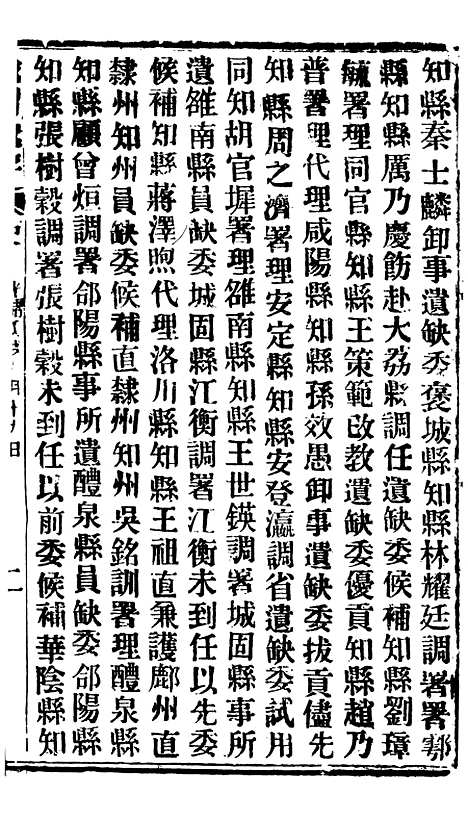 知縣秦士麟卸事遺缺委褒城縣知縣林耀廷調署署鄠
縣知縣厲乃慶飭赴大荔縣調任遺缺委候補知縣劉璋
毓署理同官縣知縣王策範改教遺缺委優貢知縣趙乃
普署理代理咸陽縣知縣孫效愚卸事遺缺委拔貢儘先
知縣周之濟署理安定縣知縣安登瀛調省遺缺委試用
同知胡官墀署理雒南縣知縣王世鍈調署城固縣事所
遺雒南縣員缺委城固縣江衡調署江衡未到任以先委
候補知縣蔣澤煦代理洛川縣知縣王祖直兼護鄜州直
隸州知州員缺委候補直隸州知州吳銘訓署理醴泉縣
知縣顧曾烜調署郃陽縣事所遺醴泉縣員缺委郃陽縣
知縣張樹穀調署張樹穀未到任以前委候補華陰縣知
二